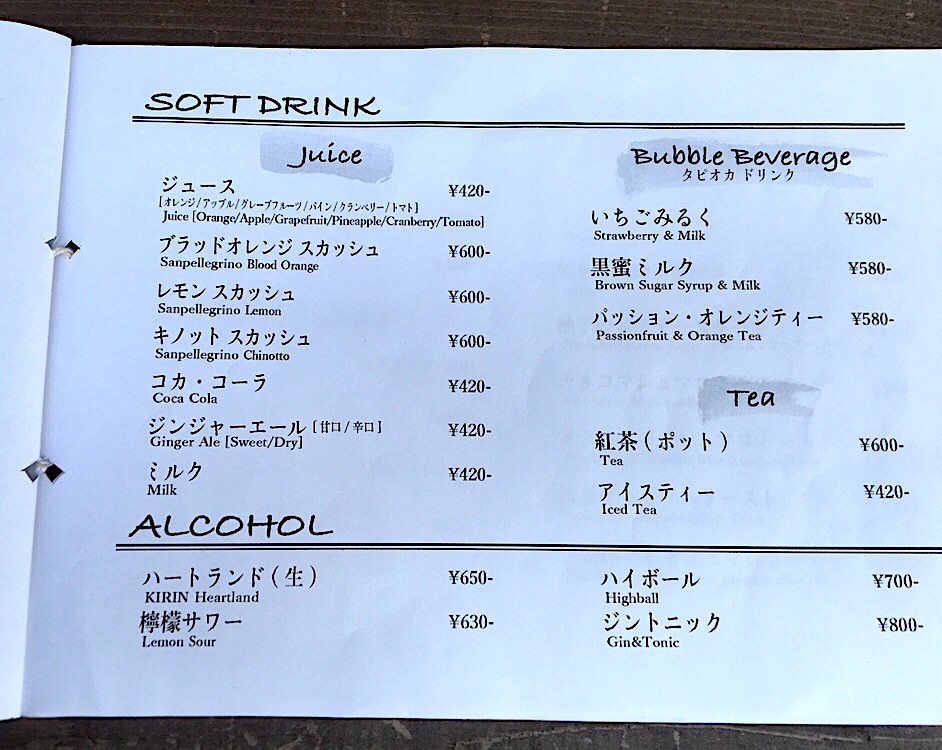 SOFT DRINK
Juice
ジュース ¥420-
[オレンジ/アップル/グレープフルーツ/パイン/クランベリー/トマト]
Juice [Orange/Apple/Grapefruit/Pineapple/Cranberry/Tomato]
ブラッドオレンジ スカッシュ ¥600-
Sanpellegrino Blood Orange
レモン スカッシュ ¥600-
Sanpellegrino Lemon
キノット スカッシュ ¥600-
Sanpellegrino Chinotto
コカ・コーラ ¥420-
Coca Cola
ジンジャーエール [甘口/辛口] ¥420-
Ginger Ale [Sweet/Dry]
ミルク ¥420-
Milk
Bubble Beverage
タピオカ ドリンク
いちごみるく ¥580-
Strawberry & Milk
黒蜜ミルク ¥580-
Brown Sugar Syrup & Milk
パッション・オレンジティー ¥580-
Passionfruit & Orange Tea
Tea
紅茶(ポット) ¥600-
Tea
アイスティー ¥420-
Iced Tea
ALCOHOL
ハートランド(生) ¥650-
KIRIN Heartland
檸檬サワー ¥630-
Lemon Sour
ハイボール ¥700-
Highball
ジントニック ¥800-
Gin&Tonic